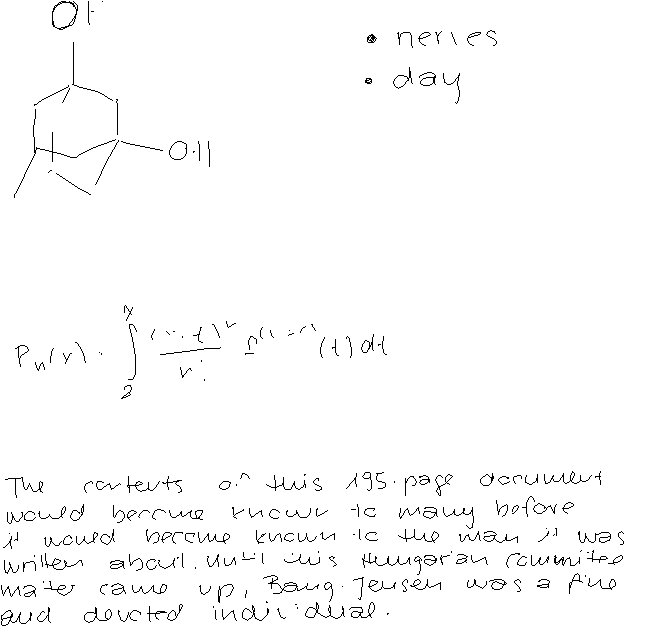 OH
• neries
• day
OH
The contents of this 195-page document
would become known to many before
it would become known to the man it was
written about. Until this Hungarian committee
matter came up, Bang-Jensen was a fine
and devoted individual.